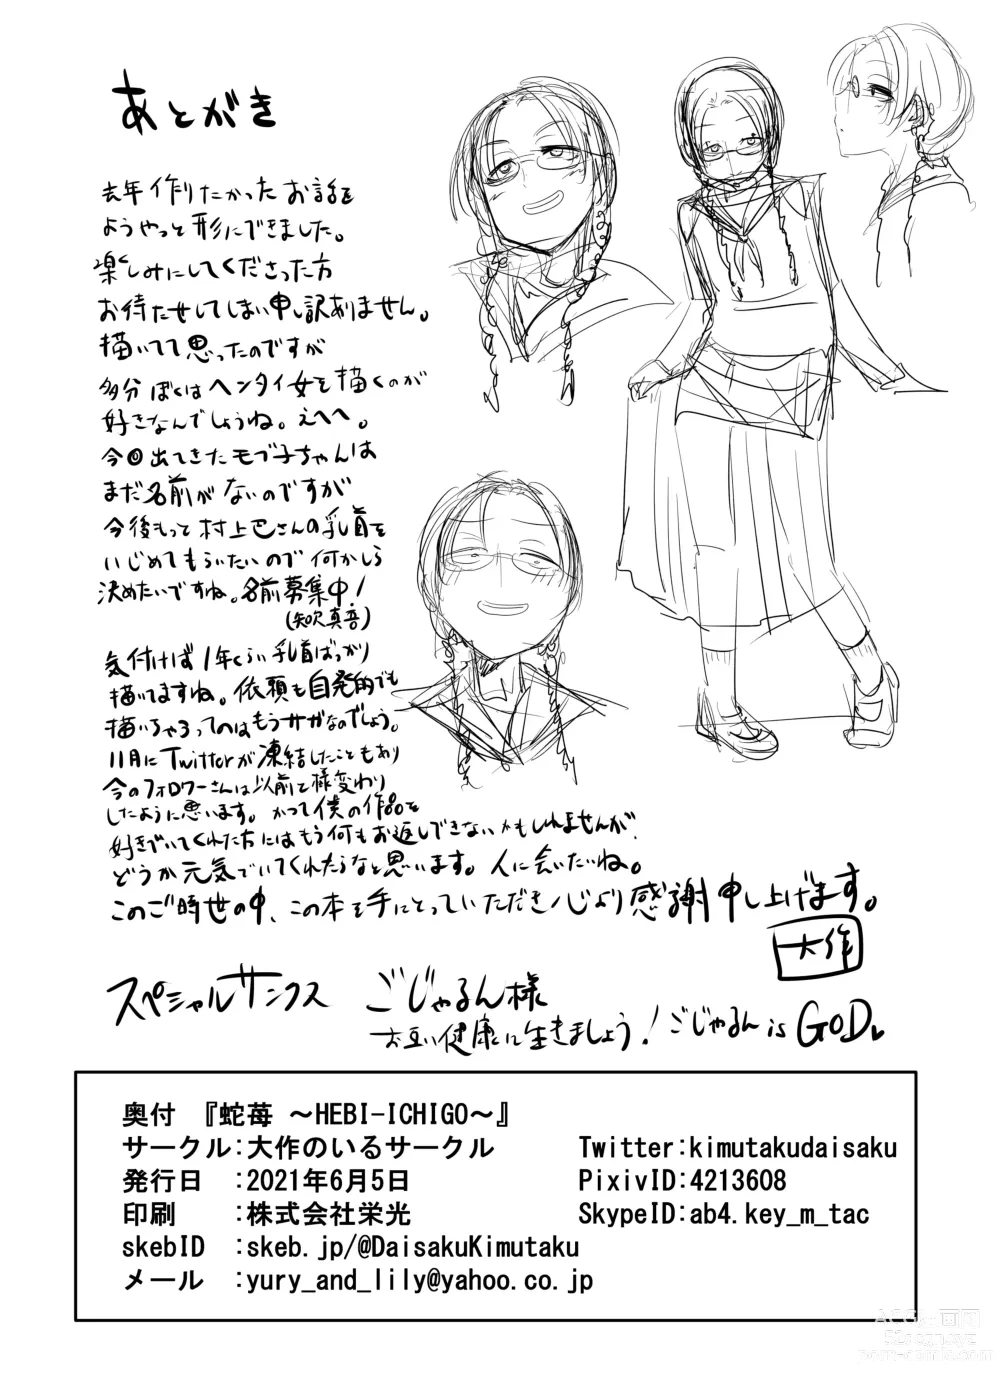 あとがき
去年作りたかったお話を
ようやっと形にできました。
楽しみにしてくださった方
お待たせしてしまい申し訳ありません。
描いてて思ったのですが
多分ぼくはヘンタイ女を描くのが
好きなんでしょうね。えへへ。
今回出てきたモブ子ちゃんは
まだ名前がないのですが
今後もって村上巴さんの乳首を
いじめてもらいたいので何かしら
決めたいですね。名前募集中!
気付けば1年くらい乳首ばっかり
描いてますね。依頼も自発的でも
描いちゃうってのはもうサガなのでしょう。
11月にTwitterが凍結したこともあり
今のフォロワーさんは以前と様変わり
したように思います。かつて僕の作品を
好きでいてくれた方にはもう何もお返しできないかもしれませんが、
どうか元気でいてくれたらなと思います。人に会いたいね。
このご時世の中、この本を手にとっていただき心より感謝申し上げます。
大作
スペシャルサンクス ごじゃるん様
お互い健康に生きましょう!ごじゃるん is GOD
奥付 『蛇苺 ～HEBI-ICHIGO～』
サークル:大作のいるサークル Twitter:kimutakudaisaku
発行日 :2021年6月5日 PixivID:4213608
印刷 :株式会社栄光 SkypeID:ab4.key_m_tac
skebID :skeb.jp/@DaisakuKimutaku
メール :yury_and_lily@yahoo.co.jp